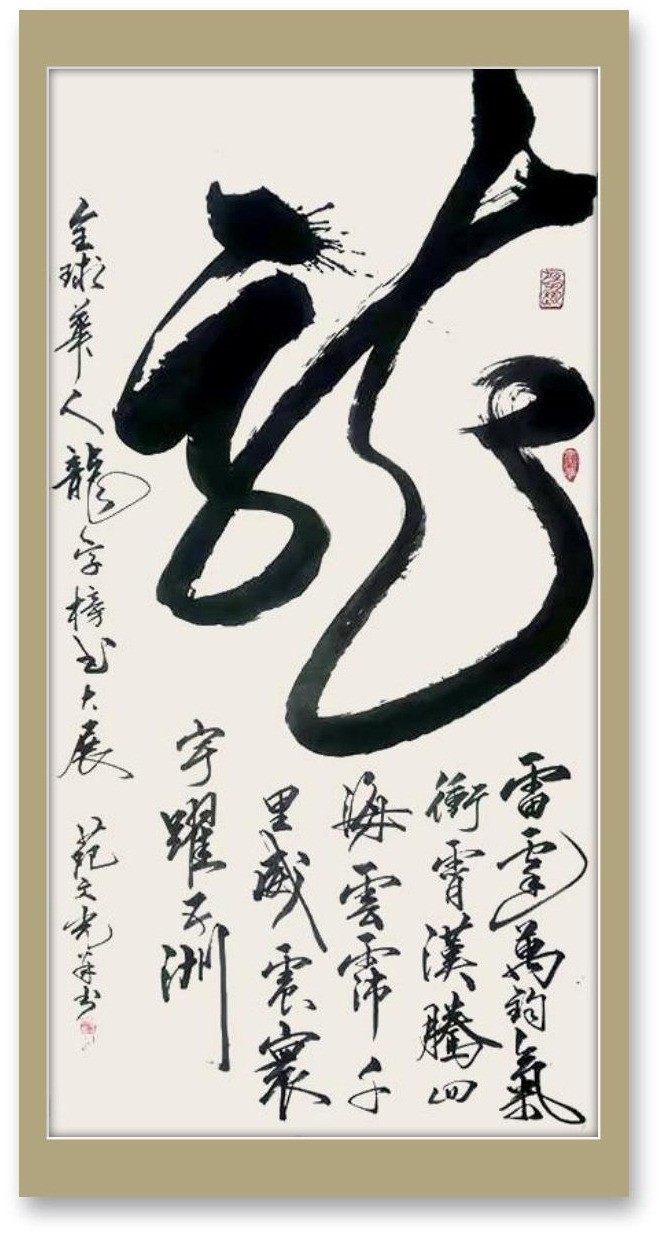 龍
雷霆萬鈞氣
衝霄漢騰四
海雲霈千
里威震寰
宇躍五洲
全球華人龍字榜书大展 范文光并书